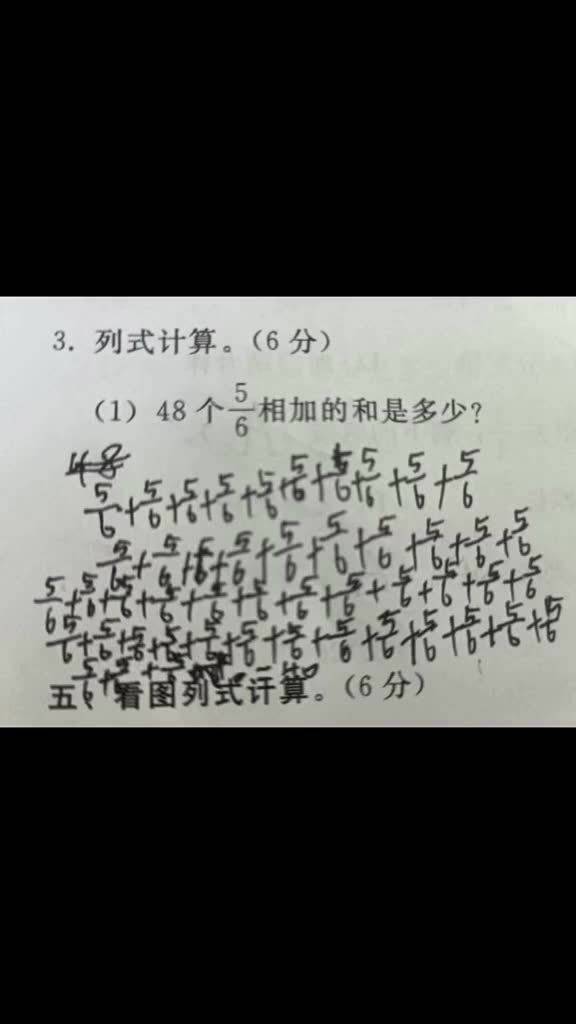 3. 列式计算。(6分)
(1) 48个5/6相加的和是多少?
48
5/6+5/6+5/6+5/6+5/6+5/6+5/6+5/6+5/6+5/6
5/6+5/6+5/6+5/6+5/6+5/6+5/6+5/6+5/6+5/6
5/6+5/6+5/6+5/6+5/6+5/6+5/6+5/6+5/6+5/6+5/6+5/6
5/6+5/6+5/6+5/6+5/6+5/6+5/6+5/6+5/6+5/6+5/6+5/6+5/6
5/6+5/6+5/6 =40
五、看图列式计算。(6分)